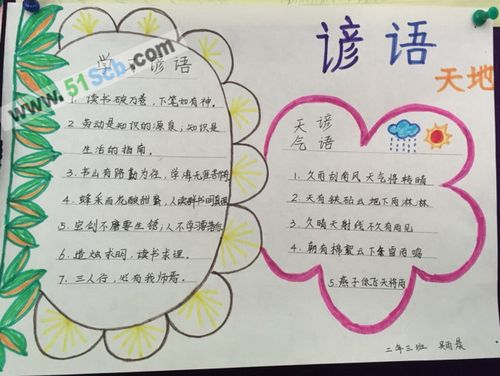 谚语
天地
www.51Scb.com
学 谚语
1. 读书破万卷，下笔如有神。
2. 劳动是知识的源泉；知识是
生活的指南。
3. 书山有路勤为径，学海无涯苦作
4. 蜂采百花酿甜蜜，人读群书明真理
5. 宝剑不磨要生锈；人不学习要落后
6. 造烛求明，读书求理。
7. 三人行，必有我师焉。
天 谚
气 语
1. 久雨刮南风天气将转晴
2. 天有铁砧云地下雨淋淋
3. 久晴天射线不久有雨见
4. 朝有棉絮云下午雷雨鸣
5. 燕子低飞天将雨
二年三班